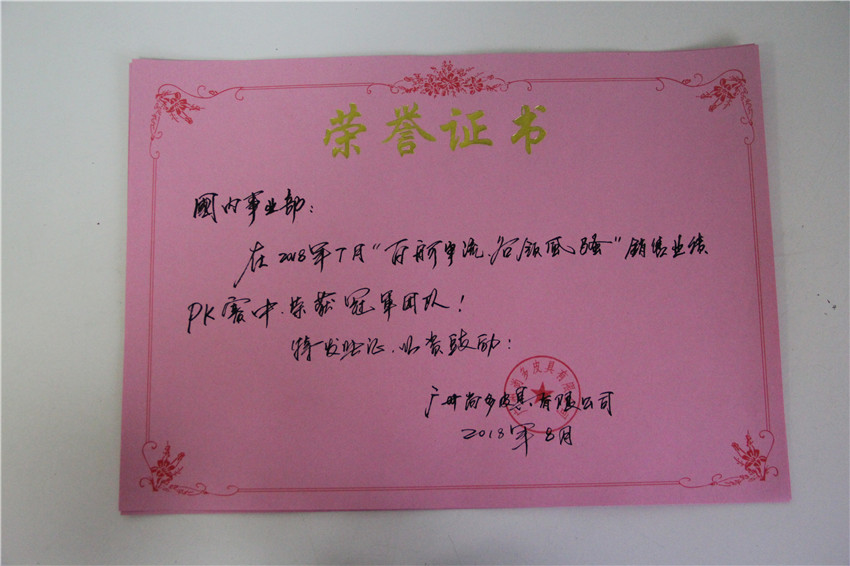 荣誉证书
國内事业部：
在2018年7月"百舸争流、谷领风骚"销售业绩
PK赛中、荣获冠军团队！
特发此证、以资鼓励：
尚多皮具有限
广州尚多皮具有限公司
2018年8月